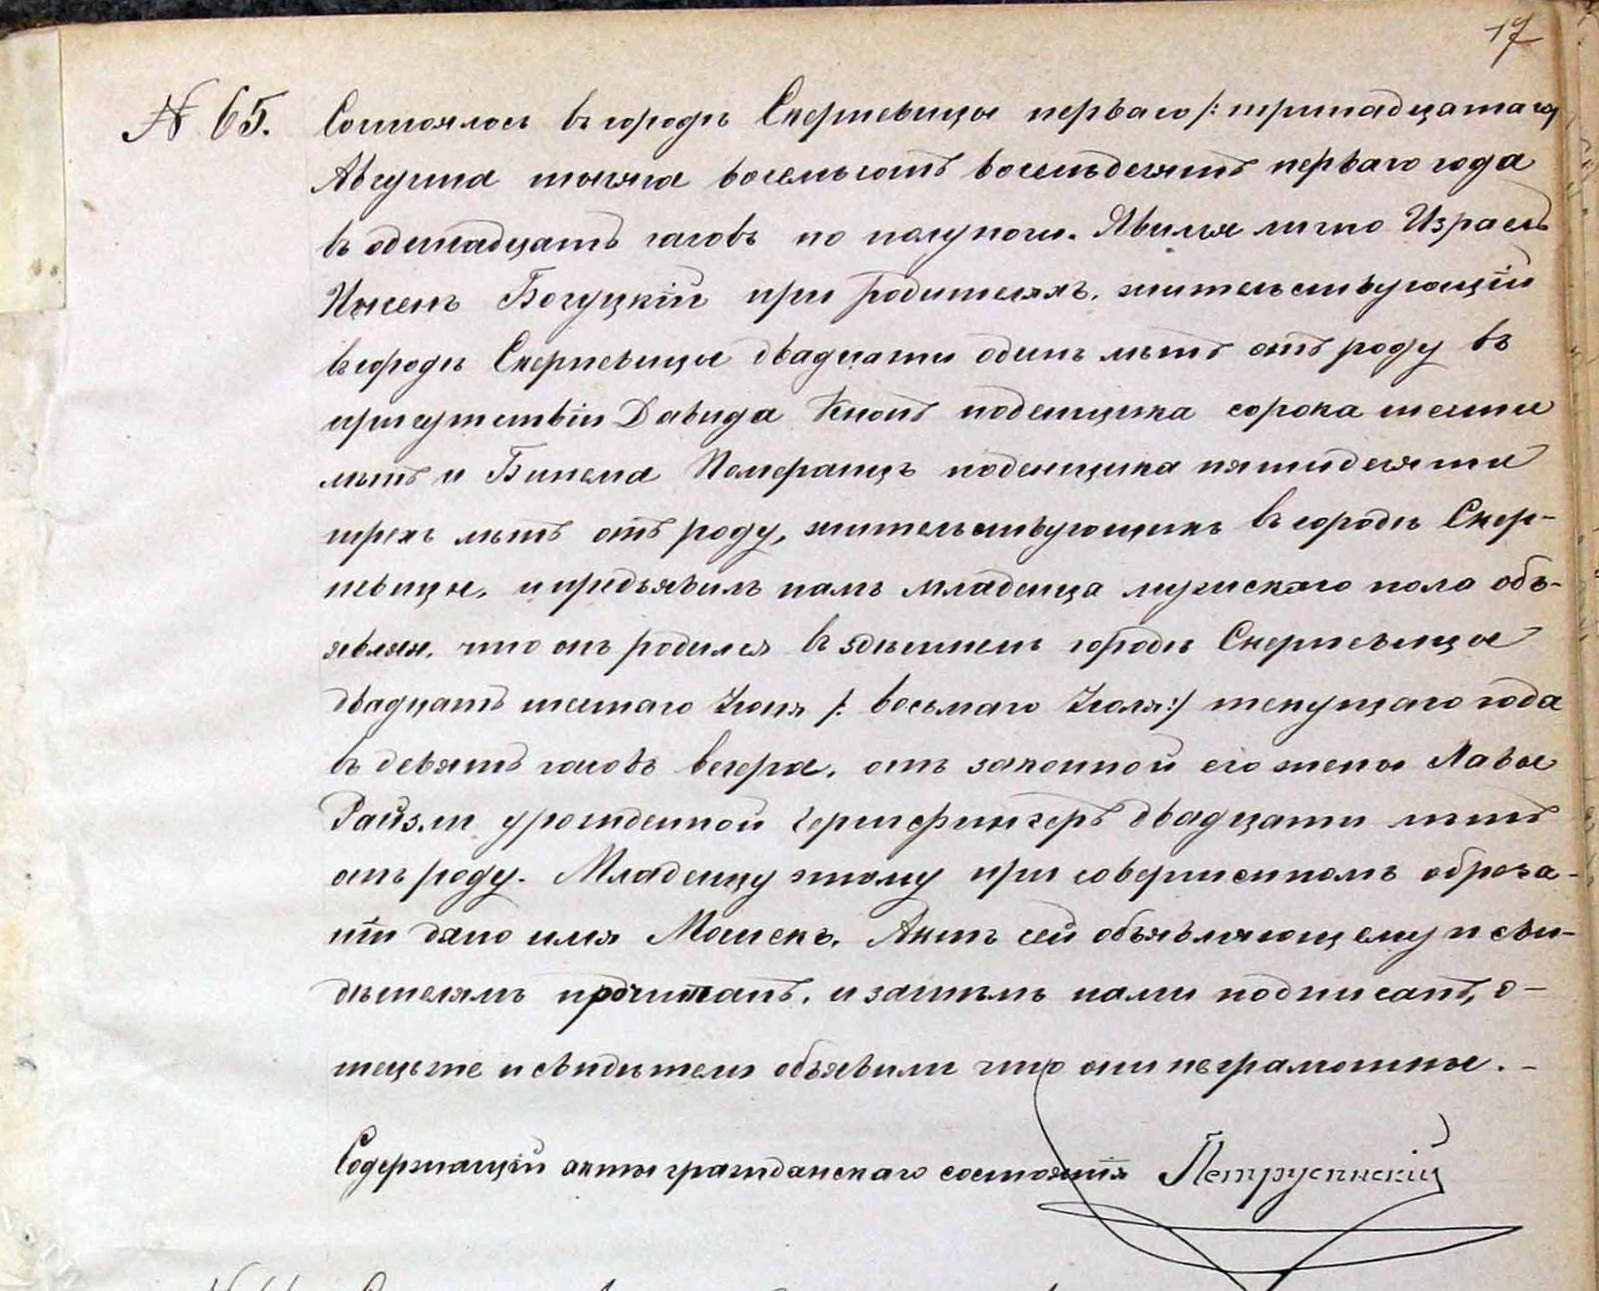 17
№ 65. Состоялось въ городѣ Скерневицы перваго /: тринадцатаго/
Августа тысяча восемьсотъ восемьдесятъ перваго года
въ одинадцать часовъ по полуночи. Явился лично Израель
Иосекъ Богуцкій при родителяхъ, жительствующій
въ городѣ Скерневицы двадцати одинъ лѣтъ отъ роду въ
присутствіи Давида Кнопъ поденщика сорока шести
лѣтъ и Бинема Померанцъ поденщика пятидесяти
трехъ лѣтъ отъ роду, жительствующихъ въ городѣ Скер-
невицы, и предъявилъ намъ младенца мужскаго пола объ-
являя, что онъ родился въ здѣшнемъ городѣ Скерневицы
двадцать шестаго Іюня /: восьмаго Іюля:/ текущаго года
въ девять часовъ вечера, отъ законной его жены Лавы
Райзли урожденной двадцати лѣтъ
отъ роду. Младенцу этому при совершенномъ обреза-
ніи дано имя Мошекъ. Актъ сей объявляющему и сви-
дѣтелямъ прочитанъ, и затѣмъ нами подписанъ, о-
тецъ же и свидѣтели объявили что они неграмотные. -
Содержащій акты гражданскаго состоянія Петрусинскій